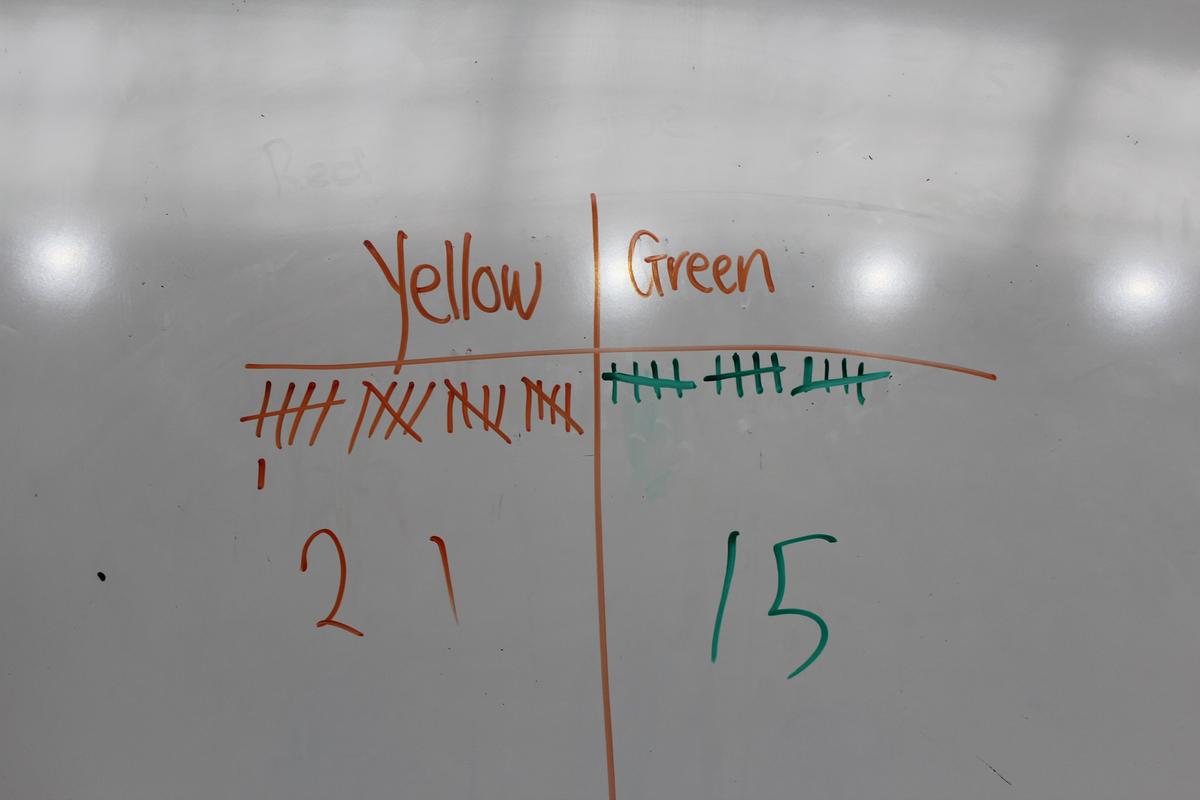 Red
Yellow Green
21 15